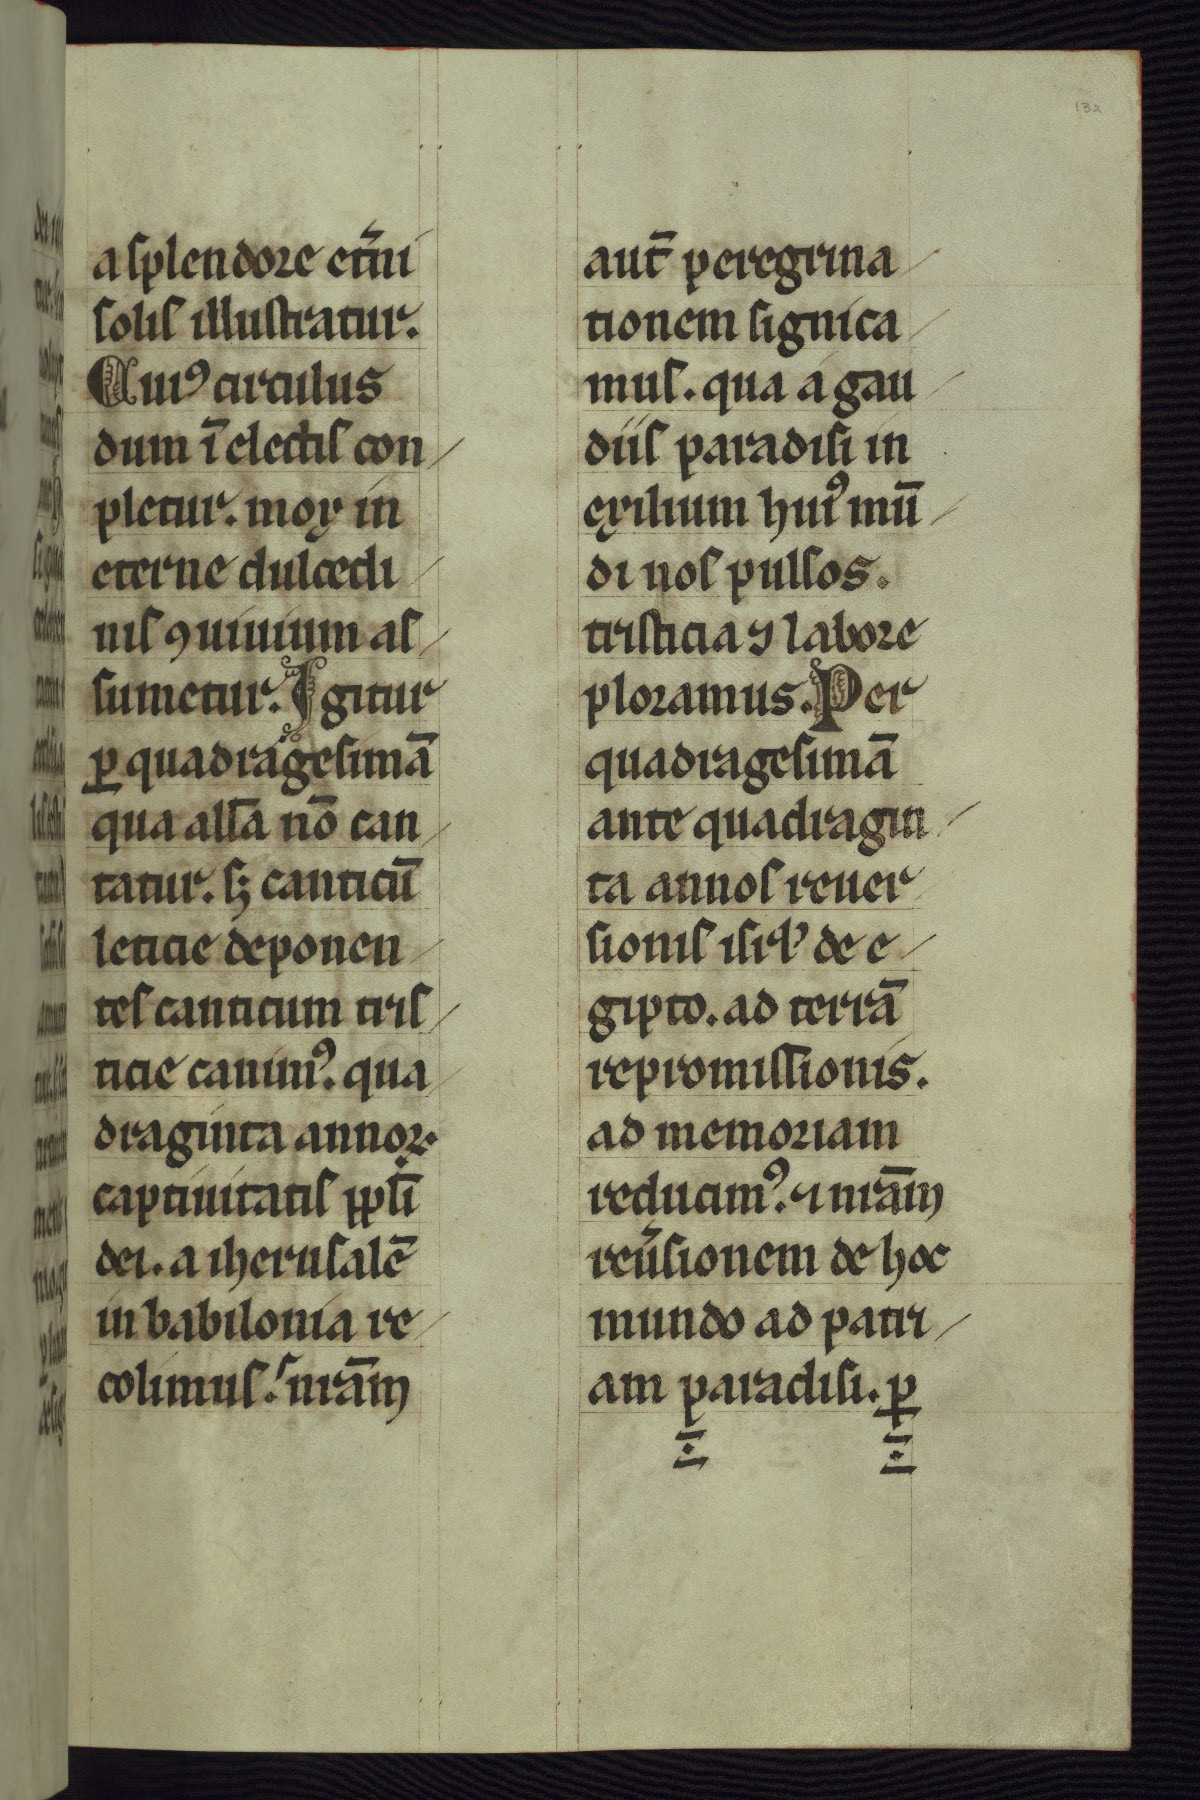 132
a splendore et̄ni
solis illustratur.
Cuiꝰ circulus
dum ī electis con
pletur. mox in
eterne dulcedi
nis ꝯuiuium as
sumetur. Igitur
ꝑ quadragesimā
qua all̄a nō can
tatur. sꝫ canticū
leticie deponen
tes canticum tris
ticie canimꝰ. qua
draginta annoꝝ
captiuitatis ppl̄i
dei. a iherusalē
in babilonia re
colimus. nr̄am
aut̄ peregrina
tionem signica
mus. qua a gau
diis paradisi in
exilium huiꝰ mū
di nos pulsos.
tristicia ⁊ labore
ploramus. Per
quadragesimā
ante quadragin
ta annos reuer
sionis isrl̓ de e
gipto. ad terrā
repromissionis.
ad memoriam
reducimꝰ. ⁊ nr̄am
reu̓sionem de hoc
mundo ad patri
am paradisi. ꝑ